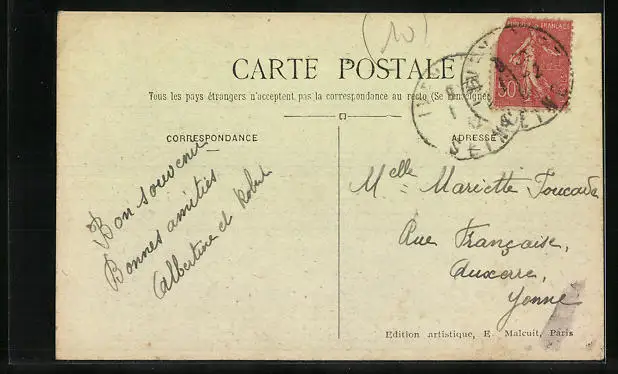 (10)
CARTE POSTALE
Tous les pays étrangers n'acceptent pas la correspondance au recto (Se renseigner
CORRESPONDANCE
ADRESSE
Bon souvenir
Bonnes amitiés
Albertine et
Melle Mariette Foucade
Rue Française,
Auxerre,
Yonne
Edition artistique, E. Malcuit, Paris
50